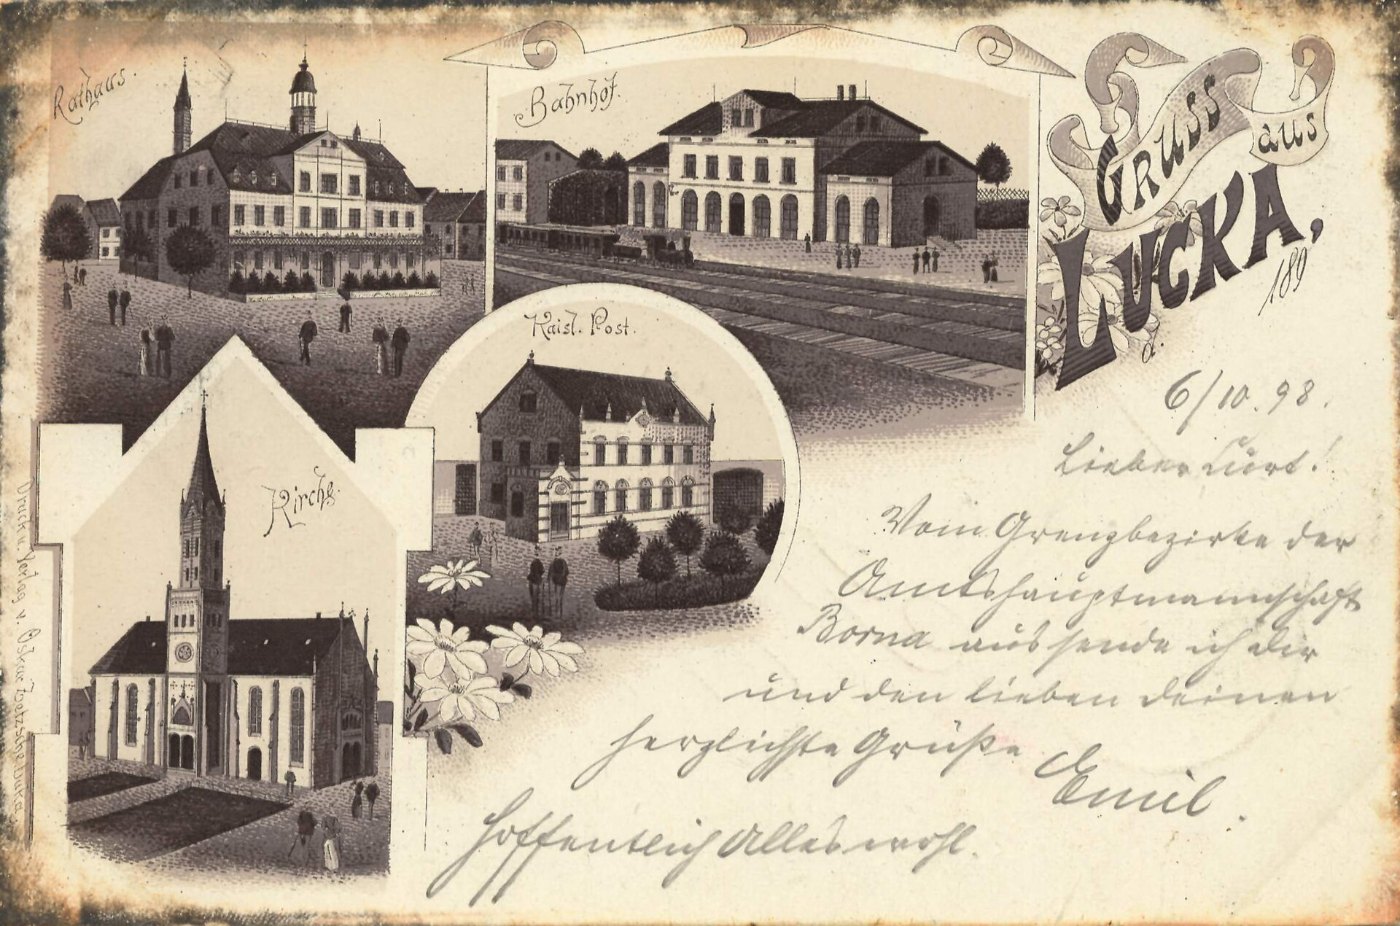 Rathaus.
Bahnhof.
Gruss
aus
Lucka,
d.
189
Kaisl. Post.
Kirche.
Druck u. Verlag v. Oskar Luka
6/10.98.
Lieber Curt!
Vom Grenzbezirke der
Amtshauptmannschaft
Borna aus sende ich dir
und den lieben deinen
herzlichste Grüße
Emil.
Hoffentlich Alles wohl.